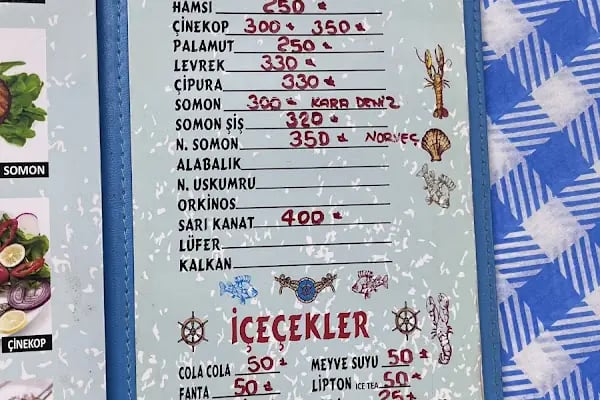 HAMSİ 250 ₺
ÇİNEKOP 300 ₺ 350 ₺
PALAMUT 250 ₺
LEVREK 330 ₺
ÇİPURA 330 ₺
SOMON 300 ₺ KARA DENİZ
SOMON ŞİŞ 320 ₺
N. SOMON 350 ₺ NORVEÇ
ALABALIK
N. USKUMRU
ORKİNOS
SARI KANAT 400 ₺
LÜFER
KALKAN
İÇEÇEKLER
COLA COLA 50 ₺ MEYVE SUYU 50 ₺
FANTA 50 ₺ LİPTON ICE TEA 50 ₺
25 ₺
SOMON
ÇİNEKOP